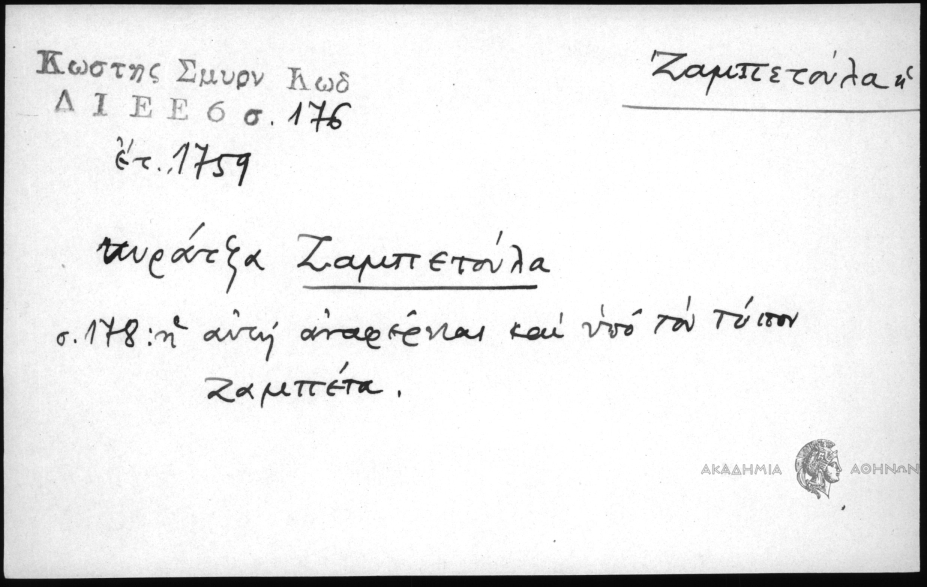 Κωστης Σμυρν Κωδ
Δ Ι Ε Ε 6 σ. 176
ἔτ. 1759
Ζαμπετούλα ἡ
κυράτζα Ζαμπετούλα
σ. 178: ἡ αὐτή ἀναφέρεται καί ὑπό τόν τύπον
Ζαμπέτα.
ΑΚΑΔΗΜΙΑ ΑΘΗΝΩΝ